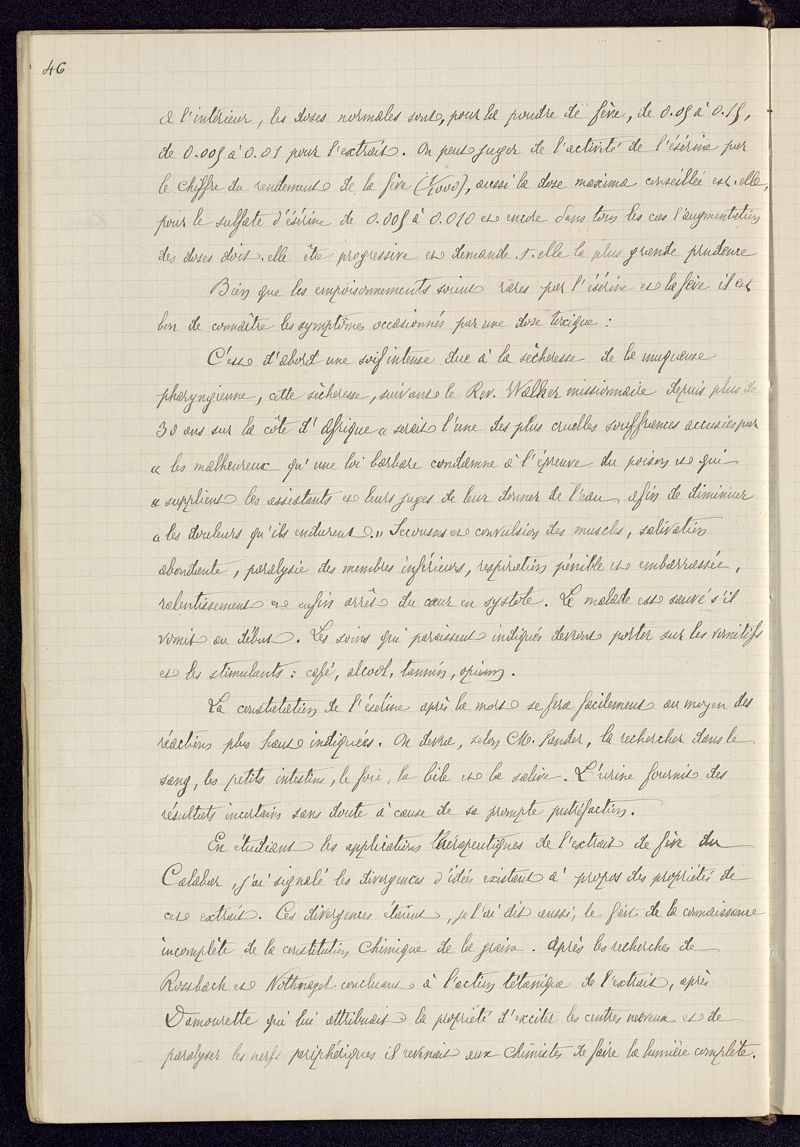 46
A l'intérieur, les doses normales sont, pour la poudre de fève, de 0.05 à 0.15,
de 0.005 à 0.01 pour l'extrait. On peut juger de l'activité de l'ésérine par
le chiffre du rendement de la fève (1/1000), aussi la dose maxima conseillée est-elle,
pour le sulfate d'ésérine de 0.005 à 0.010 et encore dans tous les cas l'augmentation
des doses doit-elle être progressive et demande-t-elle la plus grande prudence
Bien que les empoisonnements soient rares par l'ésérine et la fève il est
bon de connaître les symptômes occasionnés par une dose toxique :
C'est d'abord une soif intense due à la sècheresse de la muqueuse
pharyngienne, cette sècheresse, suivant le Rev. Walker missionnaire depuis plus de
30 ans sur la côte d'Afrique « serait l'une des plus cruelles souffrances accusées par
« les malheureux qu'une loi barbare condamne à l'épreuve du poison et qui
« supplient les assistants et leurs juges de leur donner de l'eau afin de diminuer
« les douleurs qu'ils endurent. » Secousses et convulsion des muscles, salivation
abondante, paralysie des membres inférieurs, respiration pénible et embarrassée,
ralentissement et enfin arrêt du cœur en systole. Le malade est sauvé s'il
vomit au début. Les soins qui paraissent indiqués devront porter sur les vomitifs
et les stimulants : café, alcool, tannin, opium.
La constatation de l'ésérine après la mort se fera facilement au moyen des
réactions plus haut indiquées. On devra, selon M. Pander, la rechercher dans le
sang, les petits intestins, le foie, la bile et la salive. L'urine fournit des
résultats incertains sans doute à cause de sa prompte putréfaction.
En étudiant les applications thérapeutiques de l'extrait de fève du
Calabar, j'ai signalé les divergences d'idées existant à propos des propriétés de
cet extrait. Ces divergences étaient, je l'ai dit aussi, le fait de la connaissance
incomplète de la constitution chimique de la graine. Après les recherches de
Rossbach et Nothnagel concluant à l'action tétanique de l'extrait, après
Damourette qui lui attribuait la propriété d'exciter les centres nerveux et de
paralyser les nerfs périphériques il revenait aux chimistes de faire la lumière complète.